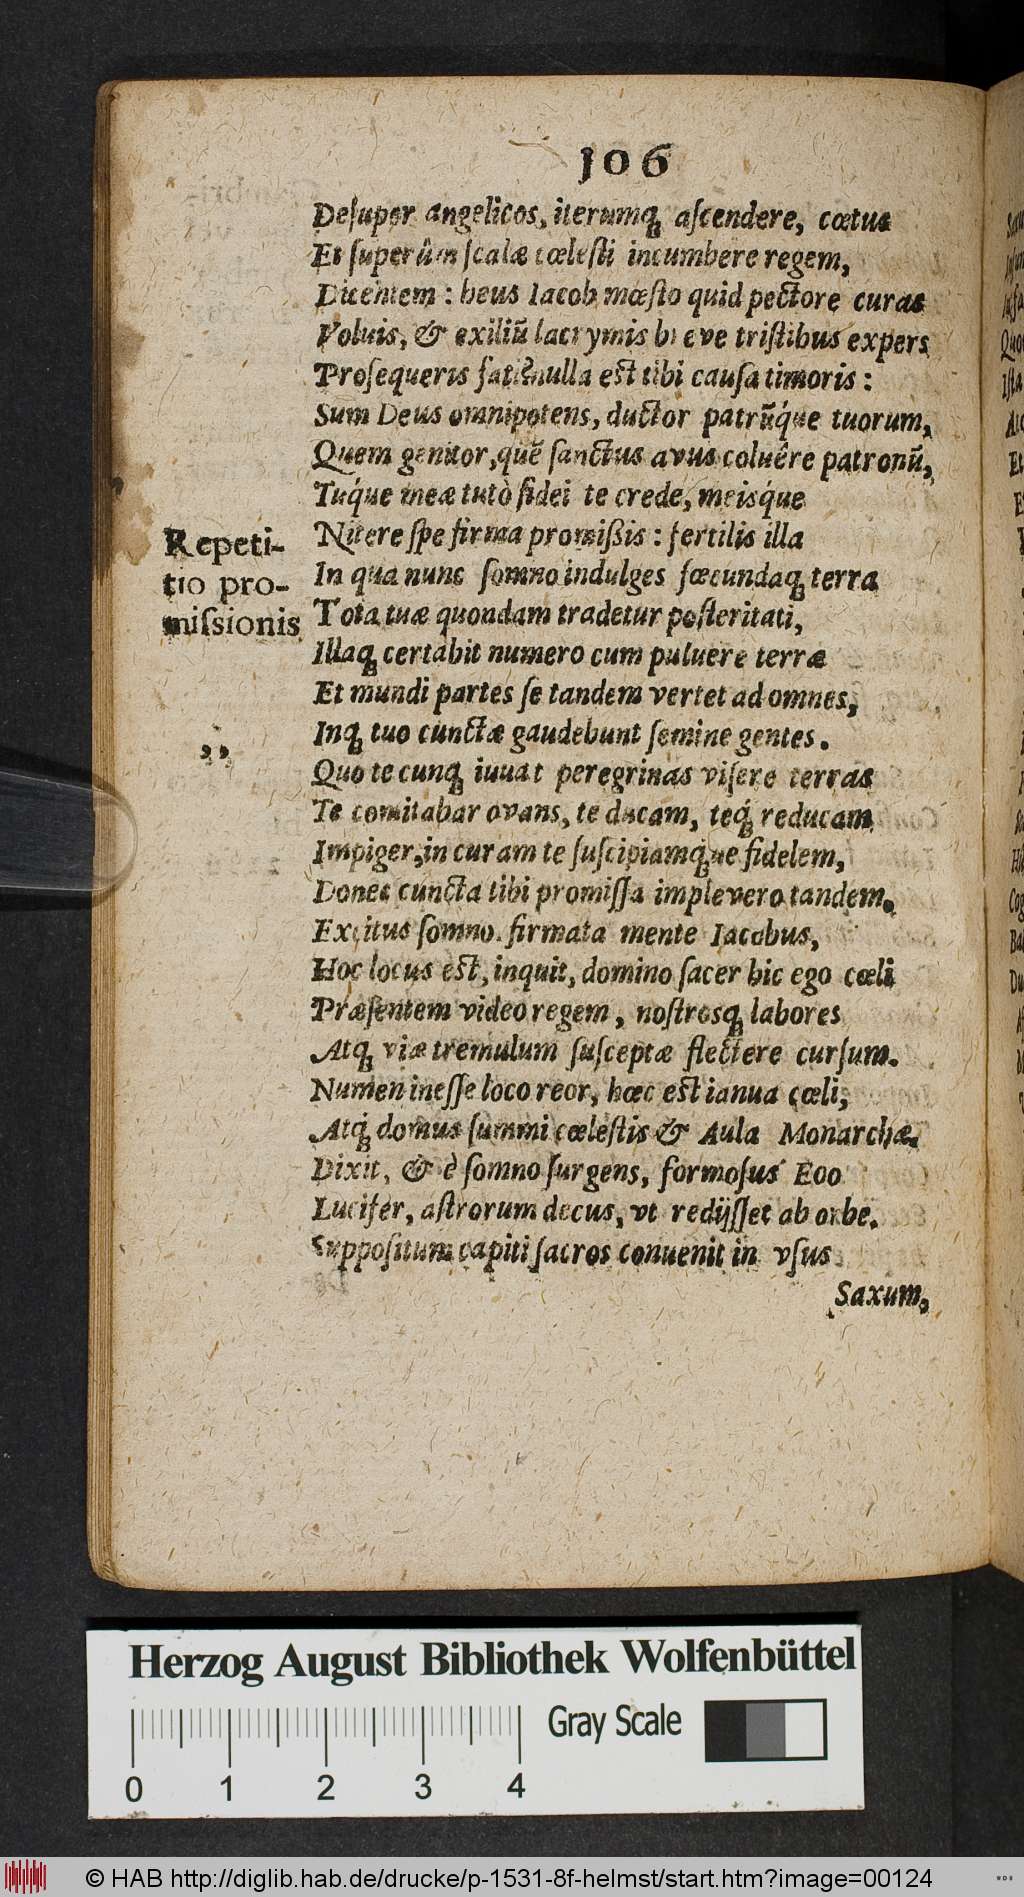 106
Deſuper angelicos, iterumq́ꝫ aſcendere, cœtus
Et ſuperûm ſcalæ cœleſti incumbere regem,
Dicentem: heus Iacob mœſto quid pectore curas
Voluis, & exiliū lacrymis breve triſtibus expers
Proſequeris nulla eſt tibi cauſa timoris:
Sum Deus omnipotens, ductor patrūq́ue tuorum,
Quem genitor, quē ſanctus avus coluêre patronū,
Tuq́ue meæ tutò fidei te crede, meisq́ue
Nitere ſpe firma promiſſis: fertilis illa
Repeti-
tio pro-
miſsionis
In qua nunc ſomno indulges fœcundaqꝫ terra
Tota tuæ quondam tradetur poſteritati,
Illaqꝫ certabit numero cum puluere terræ
Et mundi partes ſe tandem vertet ad omnes,
,,
Inqꝫ tuo cunctæ gaudebunt ſemine gentes.
Quo te cunqꝫ iuuat peregrinas viſere terras
Te comitabar ovans, te ducam, teq́ꝫ reducam
Impiger, in curam te ſuſcipiamq́ue fidelem,
Donec cuncta tibi promiſſa implevero tandem.
Excitus ſomno. firmata mente Iacobus,
Hoc locus eſt, inquit, domino ſacer hic ego cœli
Præſentem video regem, noſtrosqꝫ labores
Atqꝫ viæ tremulum ſuſceptæ flectere curſum.
Numen ineſſe loco reor, hæc eſt ianua cœli,
Atq́ꝫ domus ſummi cœleſtis & Aula Monarchæ.
Dixit, & è ſomno ſurgens, formoſus Eoo
Lucifer, aſtrorum decus, vt redijſſet ab orbe.
Suppoſitum capiti ſacros conuenit in vſus
Saxum,
Herzog August Bibliothek Wolfenbüttel
Gray Scale
0 1 2 3 4
© HAB http://diglib.hab.de/drucke/p-1531-8f-helmst/start.htm?image=00124